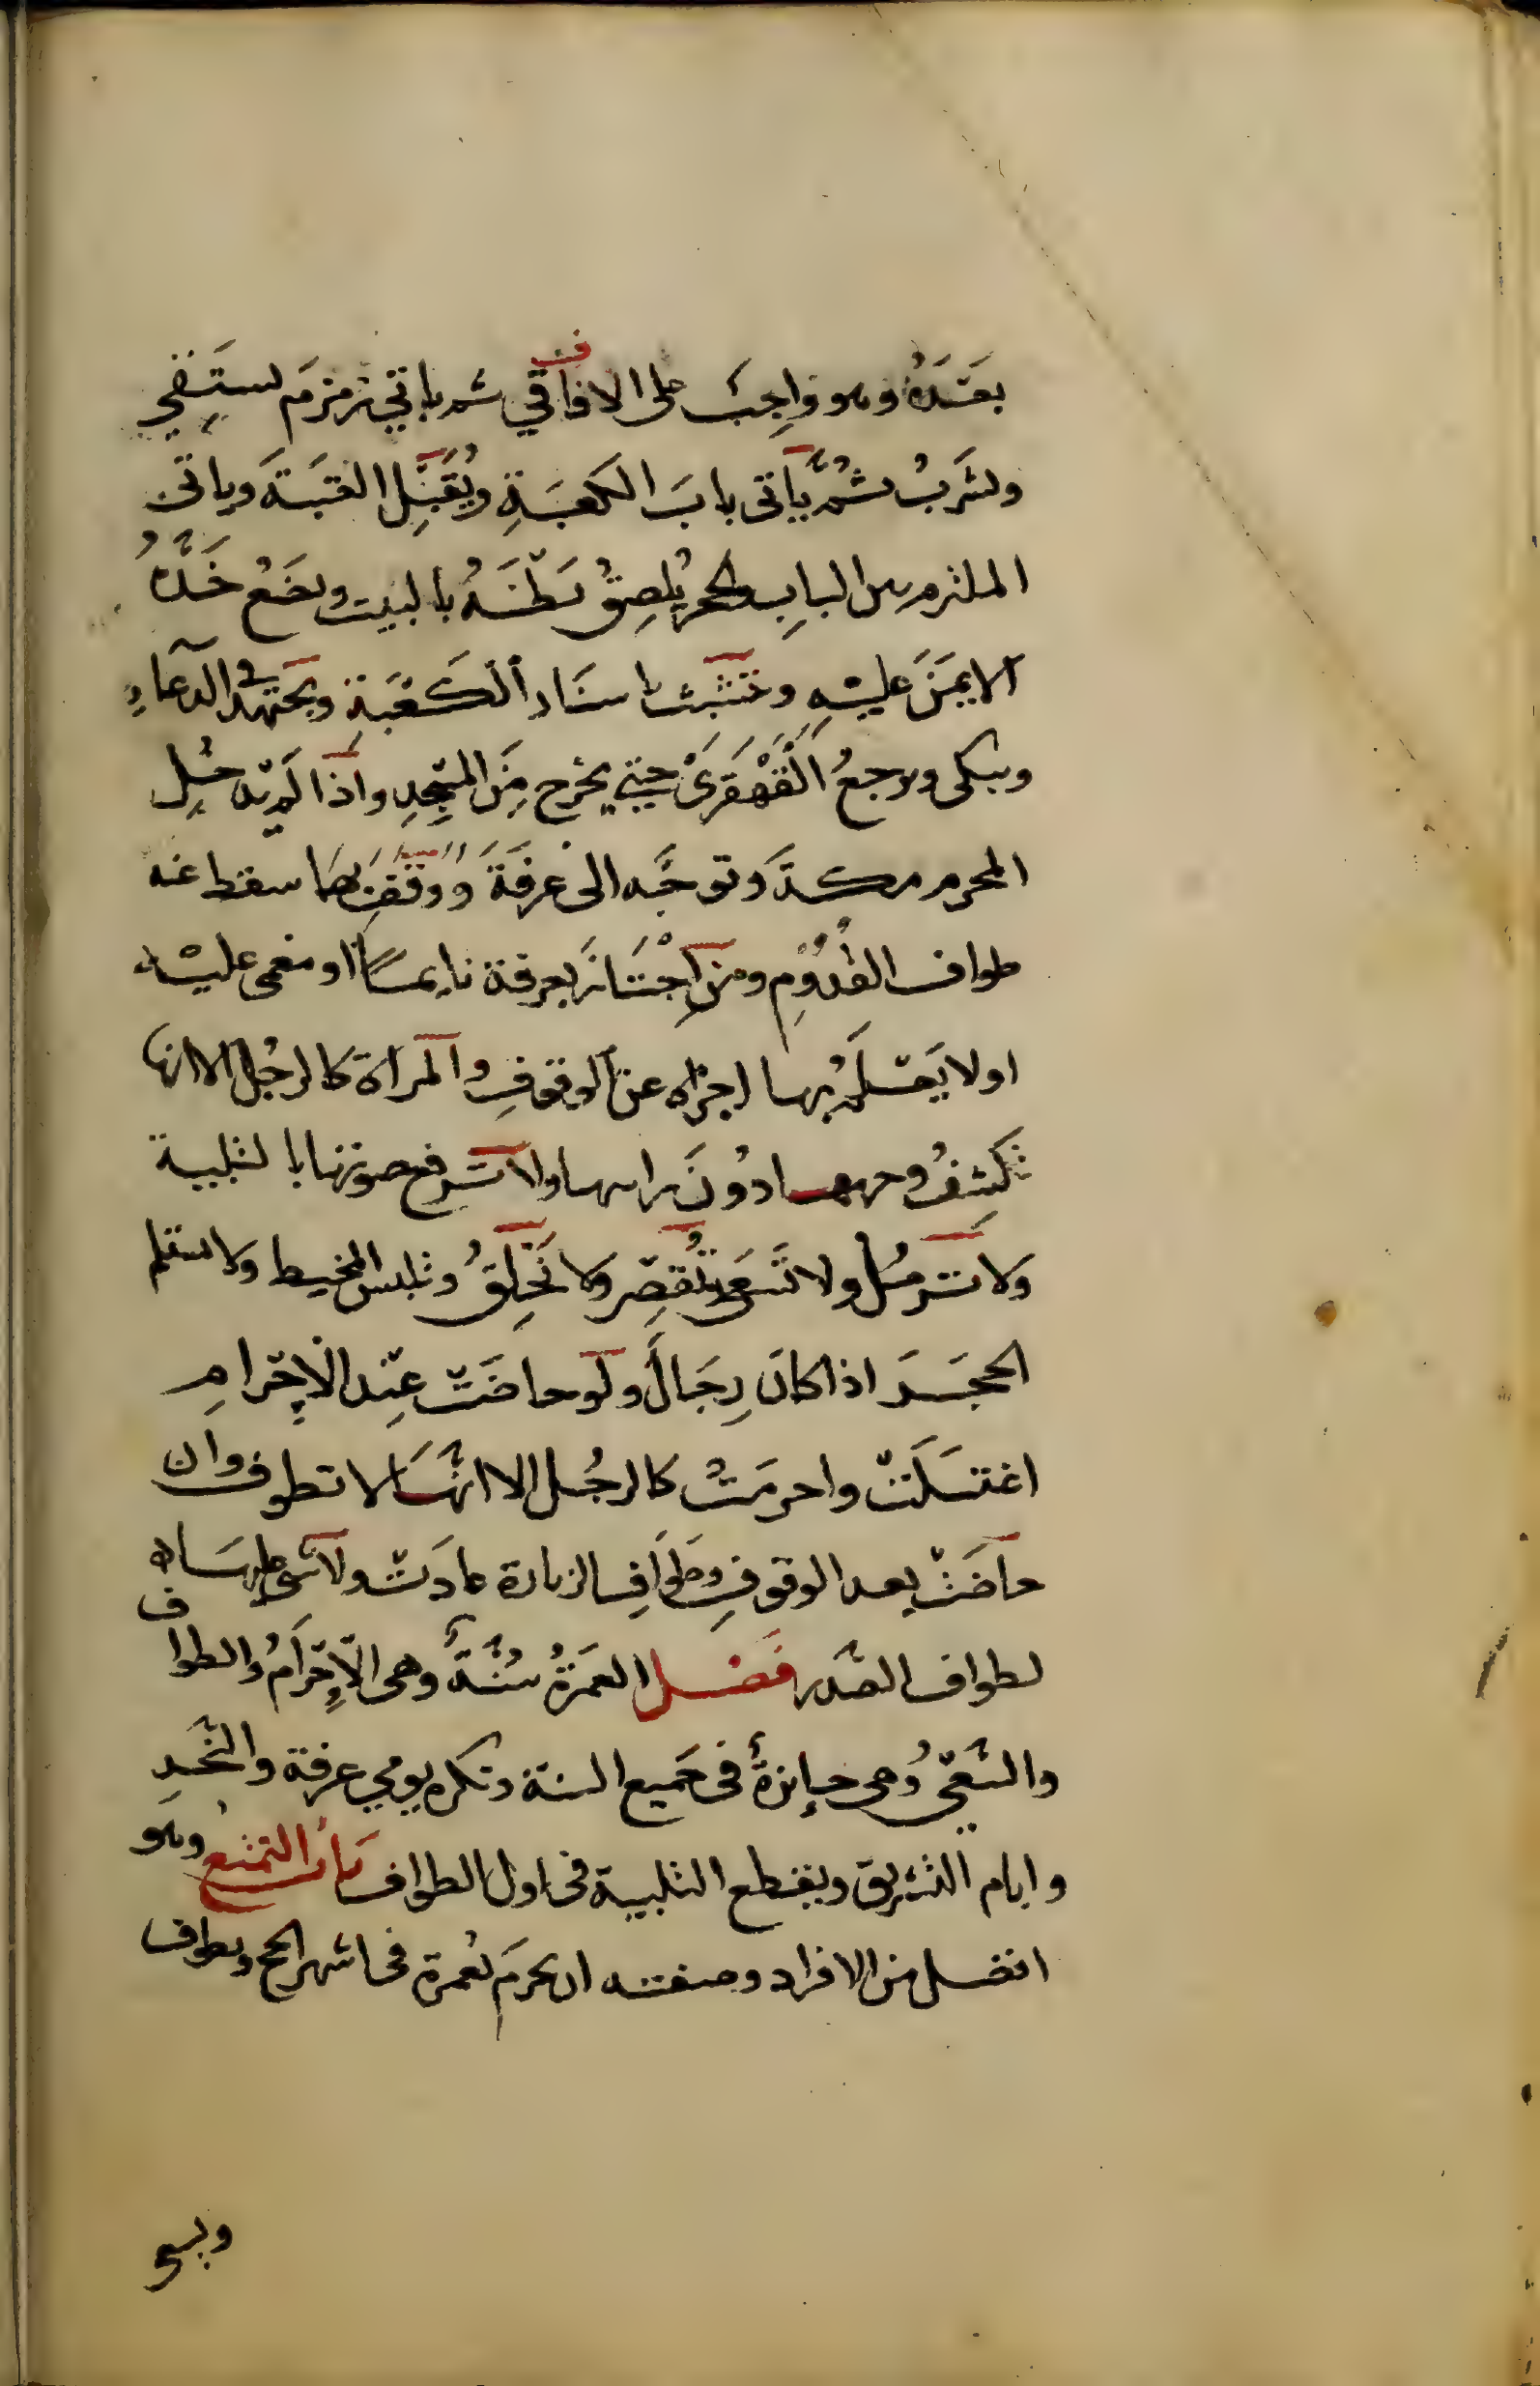 بَعْدَهُ وهو وَاجِبٌ على الافاقي ثم ياتي زمزمَ يستَقي
ويشربُ ثُمَّ يأتى بابَ الكعبَةِ ويُقَبِّل العَتبَةَ وياتى
الملتزم بين البابِ والحجر يُلصِقُ بَطْنَهُ بالبيت ويضعُ خَدَّهُ
الايمَنَ عليْهِ ويتشبث باستَارِ الكَعْبَةِ ويجتهد فى الدعاءِ
ويبكى ويرجعُ القَهْقَرَىْ حتى يخْرج مِنَ المسْجِدِ واذا لم يَدخُلِ
المحرم مكةَ وتوجَّه الى عرفَةَ وَوَقَفَ بهَا سقط عنه
طواف القُدُوْمِ ومن اجْتَازَ بعرفة نايماً او مغمى عليْه
اولا يَعْلَمُ بها اجزاه عن الوقوفِ والمراة كالرجُل الا انها
تكشِفُ وجهها دُونَ راسها ولا ترفع صوتها بالتلبية
ولا تَرمُل ولا تَسْعَى وتُقصِّر ولا تَحْلِقُ وتلبس المخيط ولا تستلم
الحجَرَ اذا كان رِجَالٌ ولو حاضَتْ عِنْد الاِحْرامِ
اغتسَلَتْ واحرمَتْ كالرجُل الا انَّهَا لا تطوف وان
حاضَتْ بعد الوقوفِ وطَوَافِ الزيارة عادَتْ ولا شى عليهَا
لطواف الصَّدَر فَصْل العمْرَةُ سُنَّةٌ وهى الاِحْرَامُ والطواف
والسَّعْيُ وهى جايزةٌ فى جَميع السنة وتكره يومي عرفة والنَّحْرِ
وايام التشريق ويقطع التلبية فى اول الطواف بَابُ التمتع وهو
افضل من الافراد وصفته ان يحرمَ بعُمرة فى اشهر الحج ويطوف
ويسعى